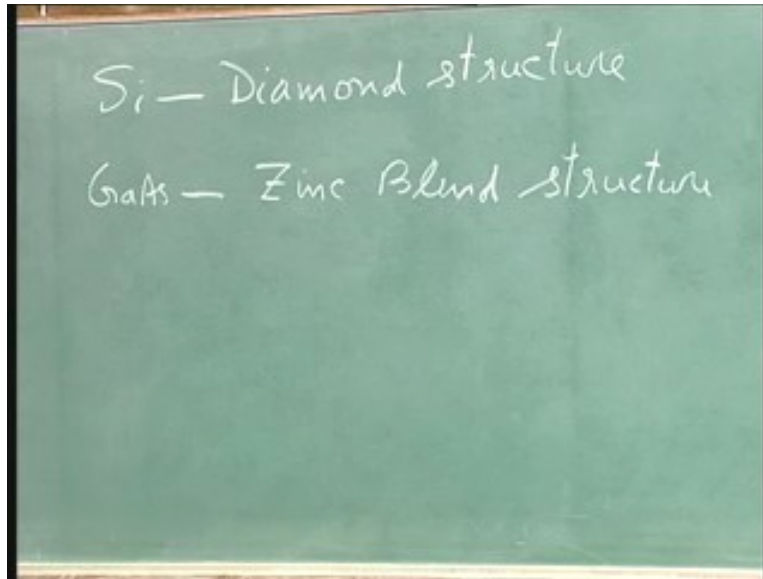 Si — Diamond structure
GaAs — Zinc Blend structure